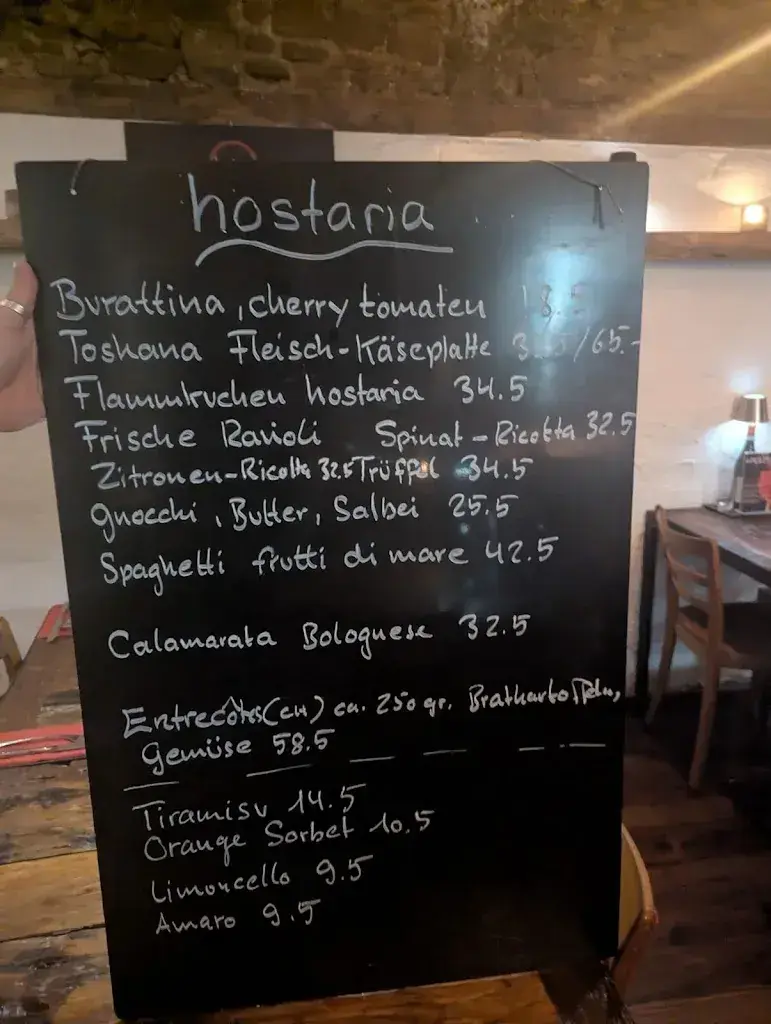 hostaria
Burattina, cherry tomaten 18.5
Toskana Fleisch-Käseplatte /65.-
Flammkuchen hostaria 34.5
Frische Ravioli Spinat-Ricotta 32.5
Zitronen-Ricotta 32.5 Trüffel 34.5
gnocchi, Butter, Salbei 25.5
Spaghetti frutti di mare 42.5
Calamarata Bolognese 32.5
Entrecôtes (CH) ca. 250 gr. Bratkartoffeln,
Gemüse 58.5
Tiramisu 14.5
Orange Sorbet 10.5
Limoncello 9.5
Amaro 9.5